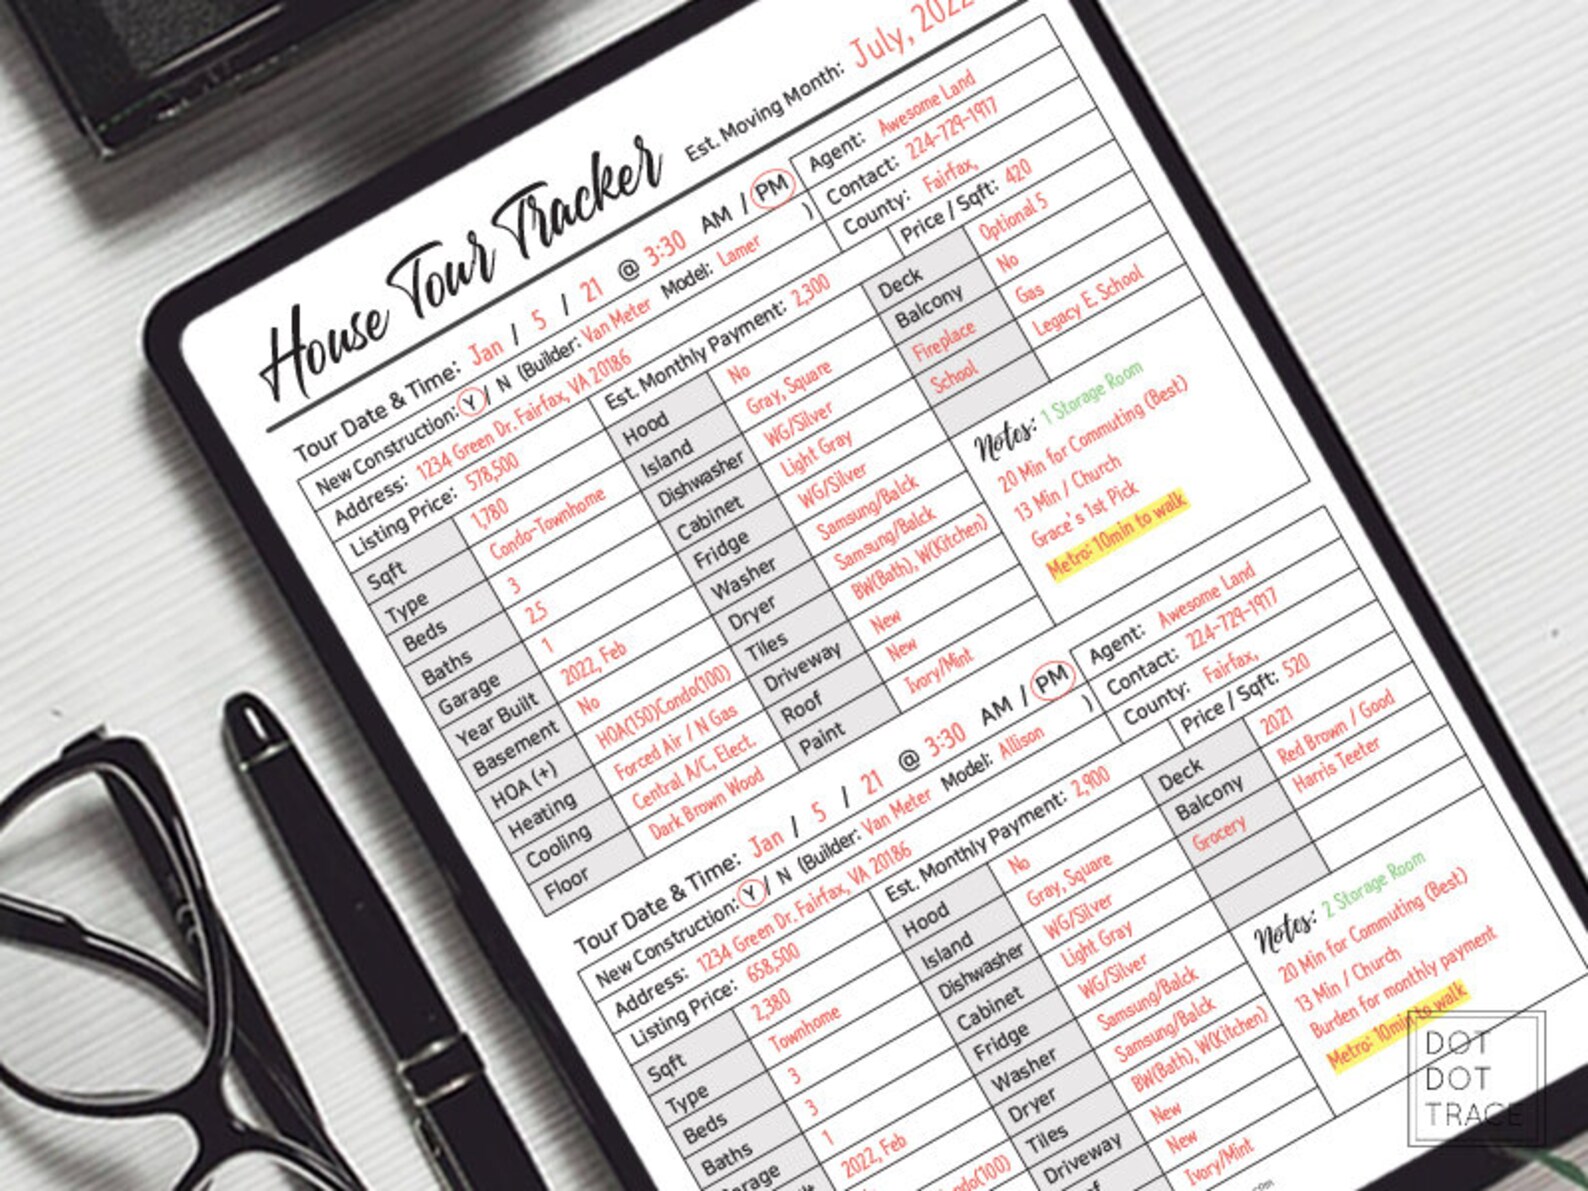 House Tour Tracker
Est. Moving Month: July, 2022
Tour Date & Time: Jan / 5 / 21 @ 3:30 AM / PM
New Construction: Y / N (Builder: Van Meter Model: Lamer )
Address: 1234 Green Dr. Fairfax, VA 20186
Listing Price: 578,500
Est. Monthly Payment: 2,300
Agent: Awesome Land
Contact: 224-729-1917
County: Fairfax,
Price / Sqft: 420
Sqft 1,780
Type Condo-Townhome
Beds 3
Baths 2.5
Garage 1
Year Built 2022, Feb
Basement No
HOA (+) HOA(150)Condo(100)
Heating Forced Air / N Gas
Cooling Central A/C, Elect.
Floor Dark Brown Wood
Hood No
Island Gray, Square
Dishwasher WG/Silver
Cabinet Light Gray
Fridge WG/Silver
Washer Samsung/Balck
Dryer Samsung/Balck
Tiles BW(Bath), W(Kitchen)
Driveway New
Roof New
Paint Ivory/Mint
Deck Optional 5
Balcony No
Fireplace Gas
School Legacy E. School
Notes: 1 Storage Room
20 Min for Commuting (Best)
13 Min / Church
Grace's 1st Pick
Metro: 10min to walk
Tour Date & Time: Jan / 5 / 21 @ 3:30 AM / PM
New Construction: Y / N (Builder: Van Meter Model: Allison )
Address: 1234 Green Dr. Fairfax, VA 20186
Listing Price: 658,500
Est. Monthly Payment: 2,900
Agent: Awesome Land
Contact: 224-729-1917
County: Fairfax,
Price / Sqft: 520
Sqft 2,380
Type Townhome
Beds 3
Baths 3
Garage 1
2022, Feb
Hood No
Island Gray, Square
Dishwasher WG/Silver
Cabinet Light Gray
Fridge WG/Silver
Washer Samsung/Balck
Dryer Samsung/Balck
Tiles BW(Bath), W(Kitchen)
Driveway New
New
Ivory/Mint
Deck 2021
Balcony Red Brown / Good
Grocery Harris Teeter
Notes: 2 Storage Room
20 Min for Commuting (Best)
13 Min / Church
Burden for monthly payment
Metro: 10min to walk
DOT
DOT
TRACE